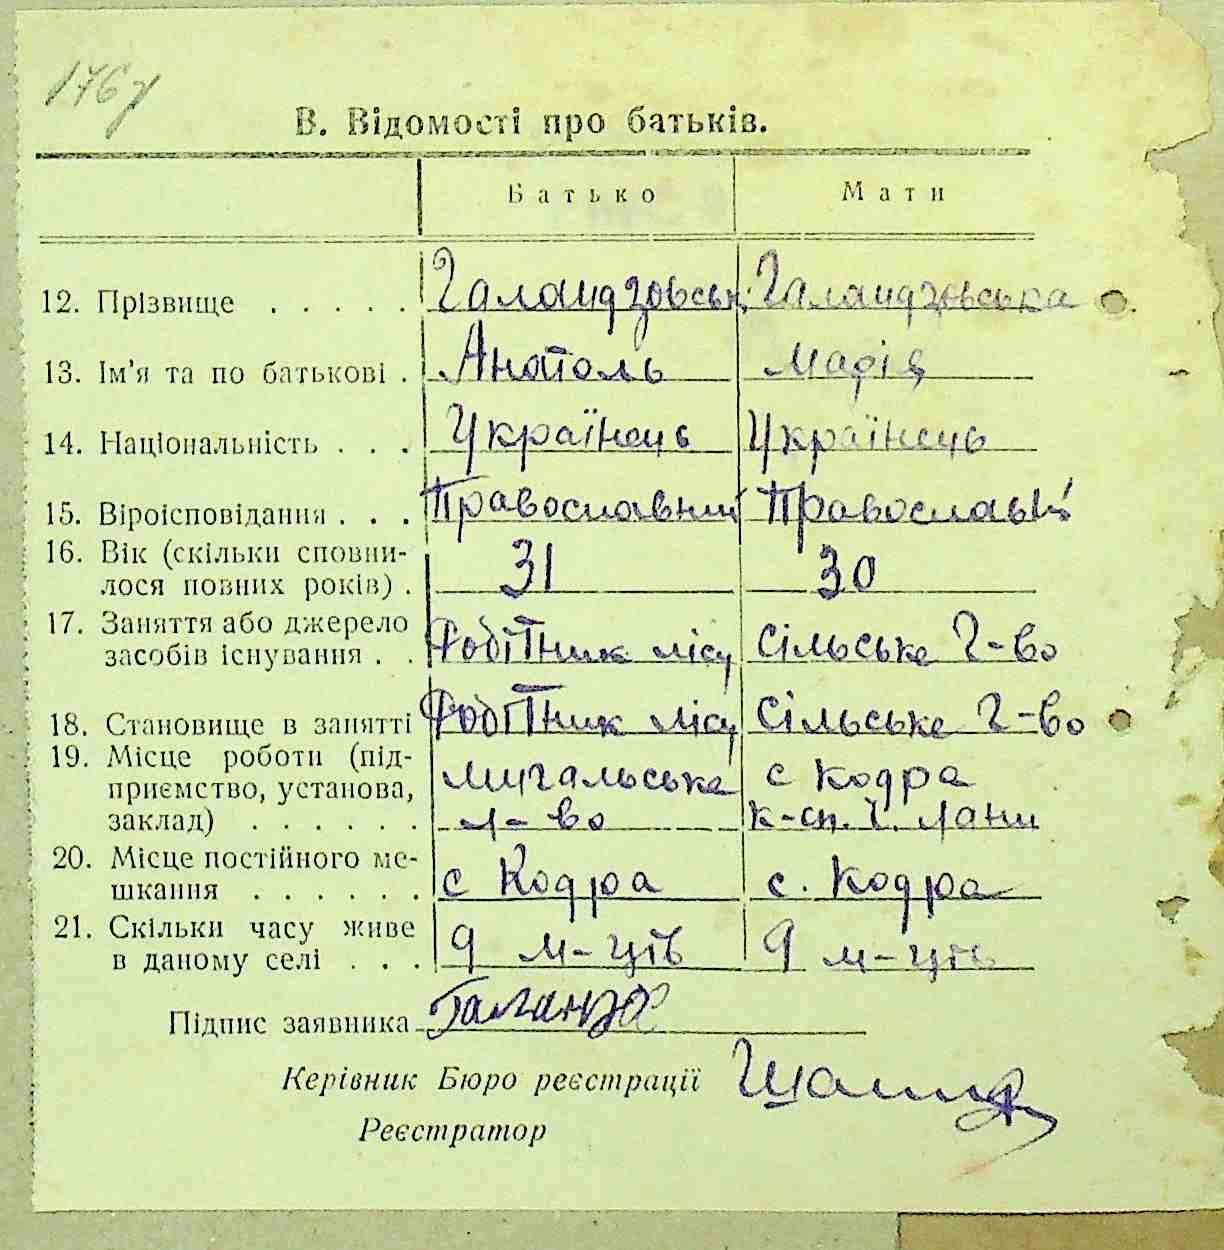 176
В. Відомості про батьків.
Батько Мати
12. Прізвище . . . . . Галандзовськ. Галандзовська
13. Ім'я та по батькові . Анатоль Марія
14. Національність . . . Українець Українець
15. Віроісповідання . . . Православний Православн
16. Вік (скільки сповни-
лося повних років) . 31 30
17. Заняття або джерело
засобів існування . . Робітник лісу Сільське г-во
18. Становище в занятті Робітник лісу Сільське г-во
19. Місце роботи (під- с Кодра
приємство, установа, Мигальське
заклад) . . . . . . л-во к-сп. Ч. Лани
20. Місце постійного ме-
шкання . . . . . . с Кодра с. Кодра
21. Скільки часу живе
в даному селі . . . 9 м-ців 9 м-ців
Підпис заявника
Керівник Бюро реєстрації
Реєстратор